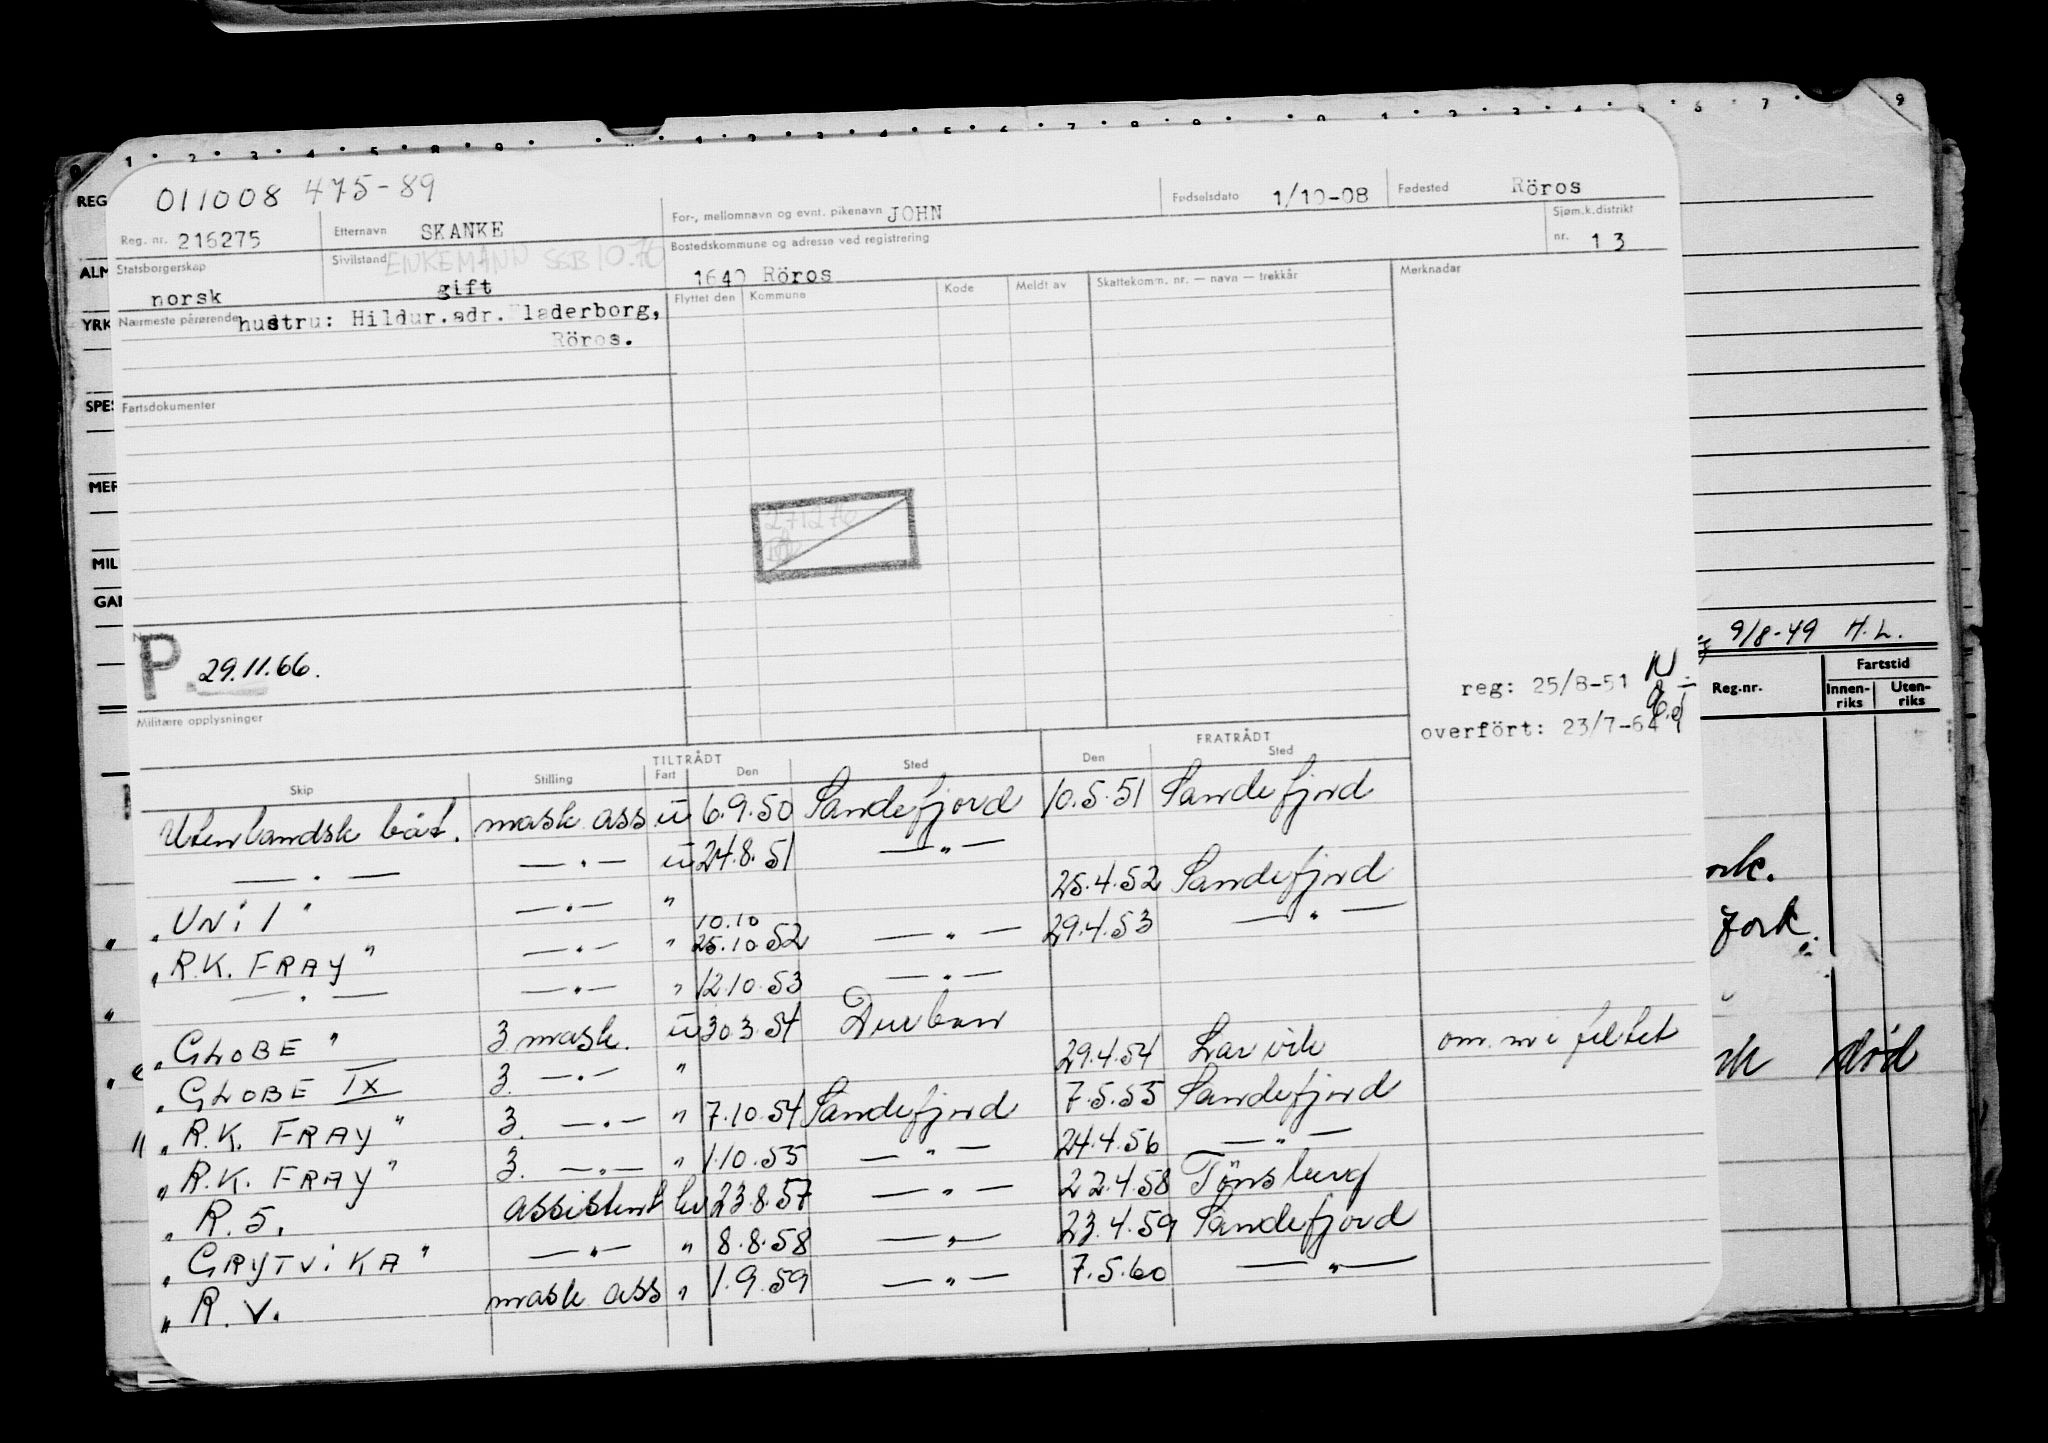 1 . 2 . 3 . 4 . 5 . 8 . 9 . 1 . 2 . 3 . 4 . 5 . 6 . 7 . 8 . 9 . 0 . 1 . 2 . 3 . 4 . 5 . 6 . 7 . 9
011008 475-89
Reg. nr. 216275
Etternavn SKANKE
For-, mellomnavn og evnt. pikenavn JOHN
Fødselsdato 1/10-08
Fødested Röros
Statsborgerskap norsk
Sivilstand ENKEMANN SSB 10.76
gift
Bostedskommune og adresse ved registrering
1640 Röros
Sjøm.k.distrikt
nr. 13
Nærmeste pårørende hustru: Hildur.adr. Fladerborg,
Röros.
Flyttet den Kommune Kode Meldt av Skattekomm. nr. — navn — trekkår Merknader
Fartsdokumenter
271276
Notater
P. 29.11.66.
Militære opplysninger
reg: 25/8-51
overfört: 23/7-64
TILTRÅDT FRATRÅDT
Skip Stilling Fart Den Sted Den Sted
Utenlandsk båt. mask ass u 6.9.50 Sandefjord 10.5.51 Sandefjord
— . — — . — u 24.8.51 — " —
" UNi I " — . — " 25.4.52 Sandefjord
10.10
" R.K. FRAY " — . — " 25.10.52 — " — 29.4.53 — " —
— . — — . — " 12.10.53 — " —
" GLOBE " 3 mask. u 30.3.54 Durban
" GLOBE IX 3. — . — " 29.4.54 Larvik om.m i feltet
" R.K. FRAY " 3. — . — " 7.10.54 Sandefjord 7.5.55 Sandefjord
" R.K. FRAY " 3. — . — " 1.10.55 — " — 24.4.56 — " —
" R.5. assistent hv 23.8.57 — " — 22.4.58 Tönsberg
" GRYTViKA " — " — " 8.8.58 — " — 23.4.59 Sandefjord
" R.V. mask ass " 1.9.59 — " — 7.5.60 — " —
REG
ALM
YRK
SPES
MER
MIL
GAR
9/8-49 H.L.
Reg.nr.
Fartstid
Innen-
riks
Uten-
riks
død